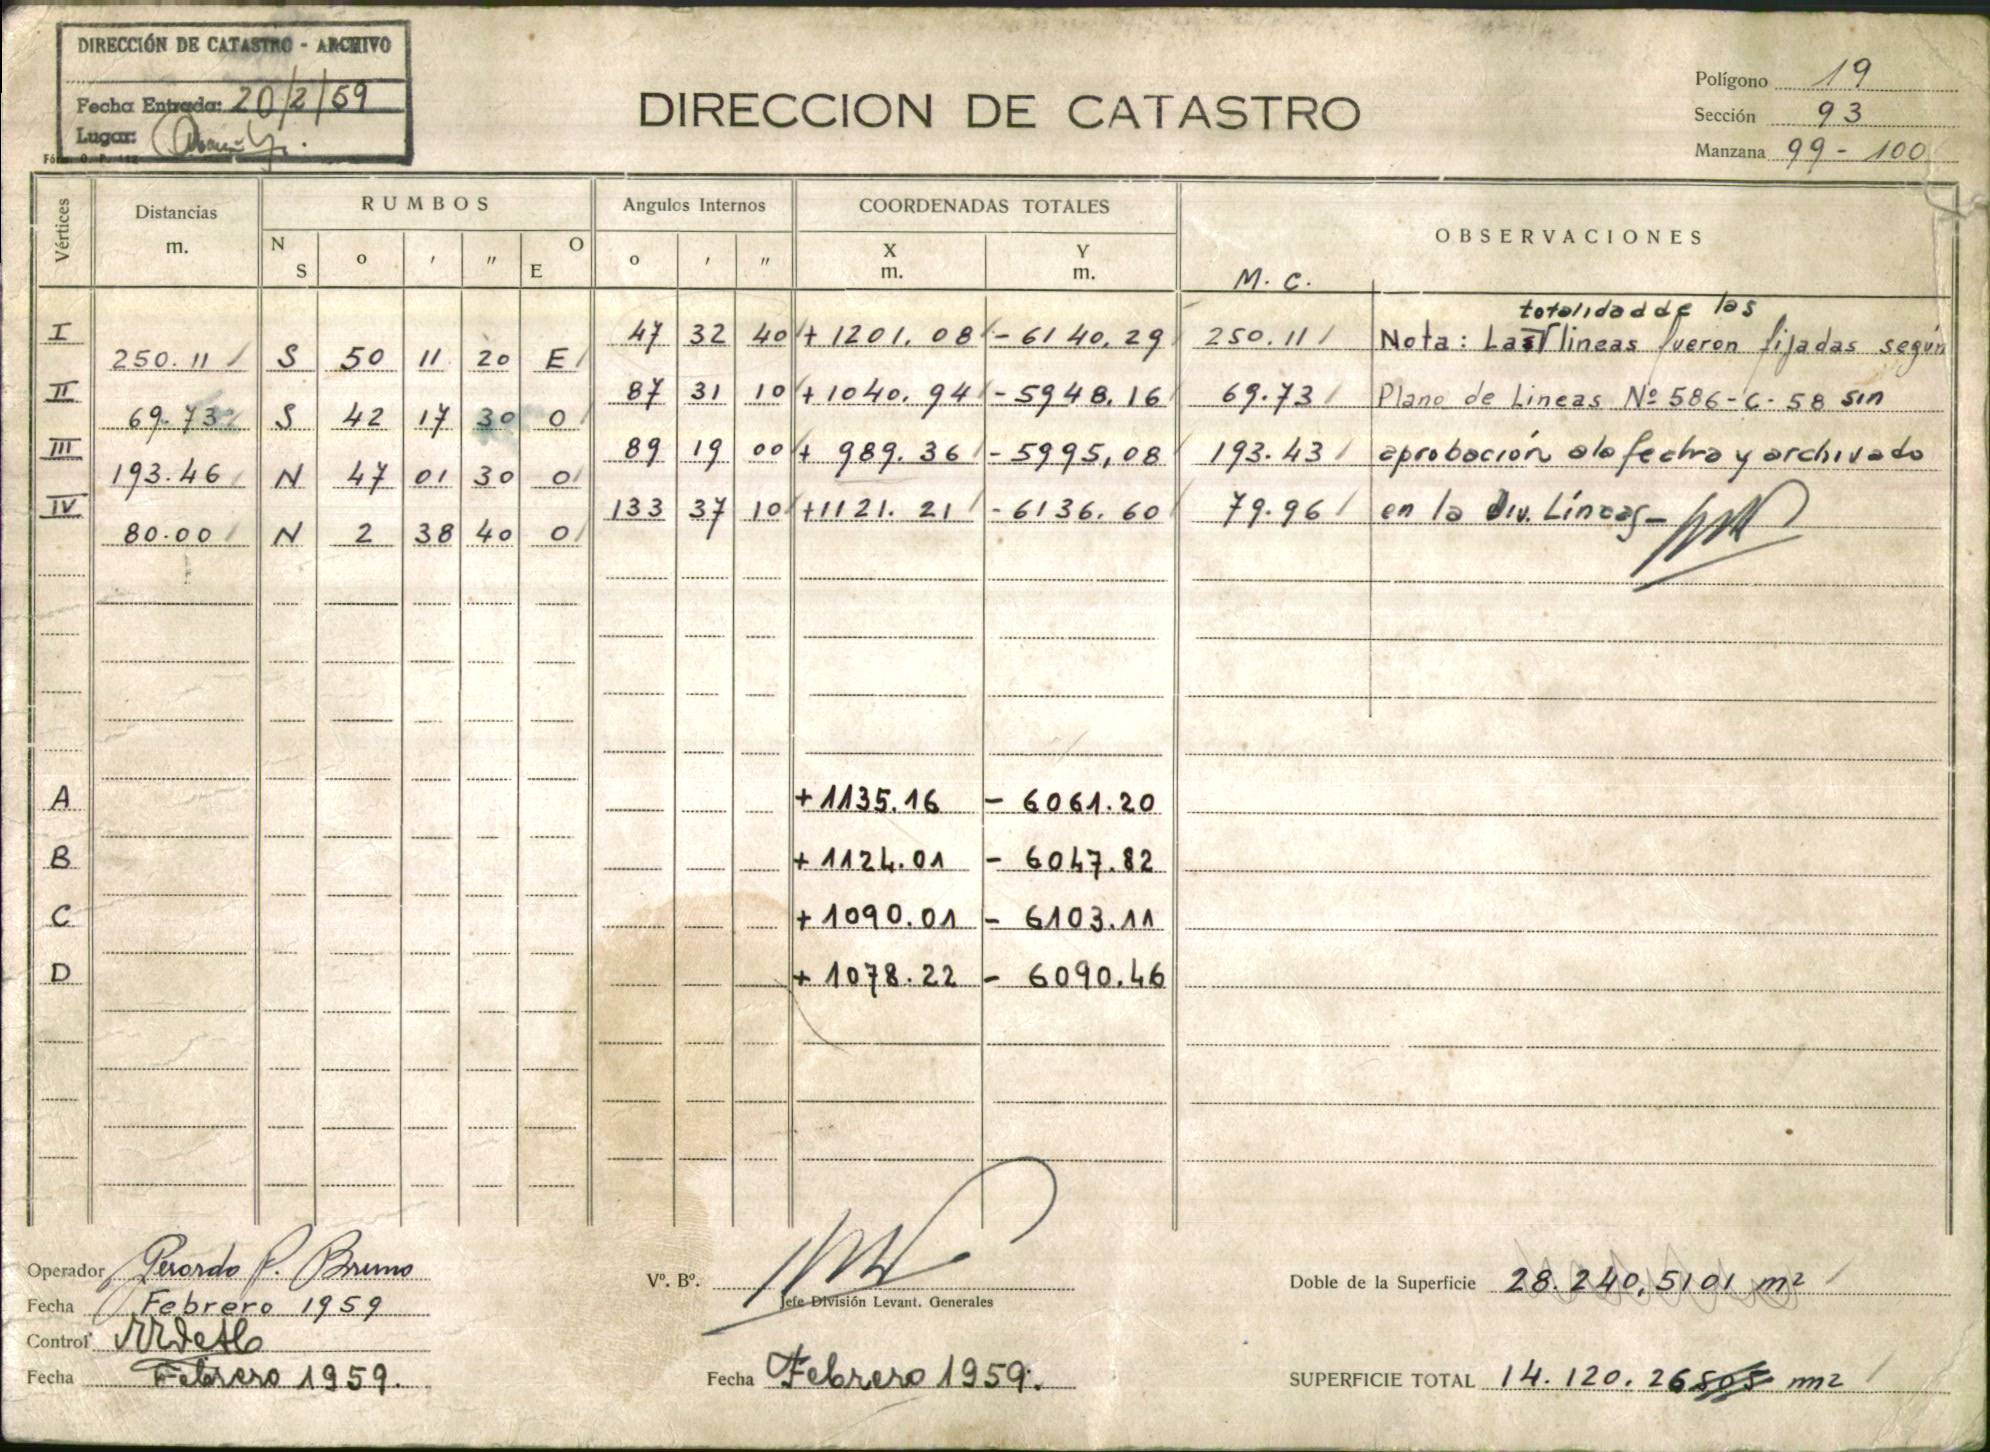 DIRECCIÓN DE CATASTRO - ARCHIVO
Fecha Entrada: 20/2/59
Lugar:
DIRECCION DE CATASTRO
Polígono 19
Sección 93
Manzana 99 - 100
Vértices Distancias m. RUMBOS Angulos Internos COORDENADAS TOTALES OBSERVACIONES
N S o ' " O E o ' " X m. Y m. M. C.
totalidad de las
I 47 32 40 + 1201. 08 - 6140. 29 250. 11 Nota: Las lineas fueron fijadas según
250. 11 S 50 11 20 E
II 87 31 10 + 1040. 94 - 5948. 16 69.73 Plano de Lineas Nº 586-C-58 sin
69.73 S 42 17 30 O
III 89 19 00 + 989. 36 - 5995,08 193.43 aprobación a la fecha y archivado
193.46 N 47 01 30 O
IV 133 37 10 +1121. 21 - 6136. 60 79.96 en la Div. Líneas-
80.00 N 2 38 40 O
A + 1135.16 - 6061.20
B + 1124.01 - 6047.82
C + 1090.01 - 6103.11
D + 1078.22 - 6090.46
Operador Gerardo P. Bruno
Fecha Febrero 1959
Control
Fecha Febrero 1959.
Vº. Bº.
Jefe División Levant. Generales
Fecha Febrero 1959.
Doble de la Superficie 28.240,5101 m2
SUPERFICIE TOTAL 14.120.26 m2